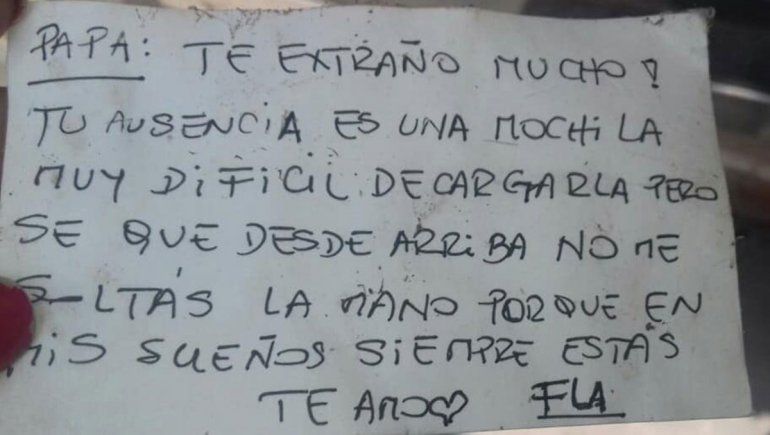 PAPA: TE EXTRAÑO MUCHO!
TU AUSENCIA ES UNA MOCHILA
MUY DIFICIL DE CARGARLA PERO
SE QUE DESDE ARRIBA NO ME
S-LTÁS LA MANO PORQUE EN
MIS SUEÑOS SIEMPRE ESTÁS
TE AMO♡ FLA